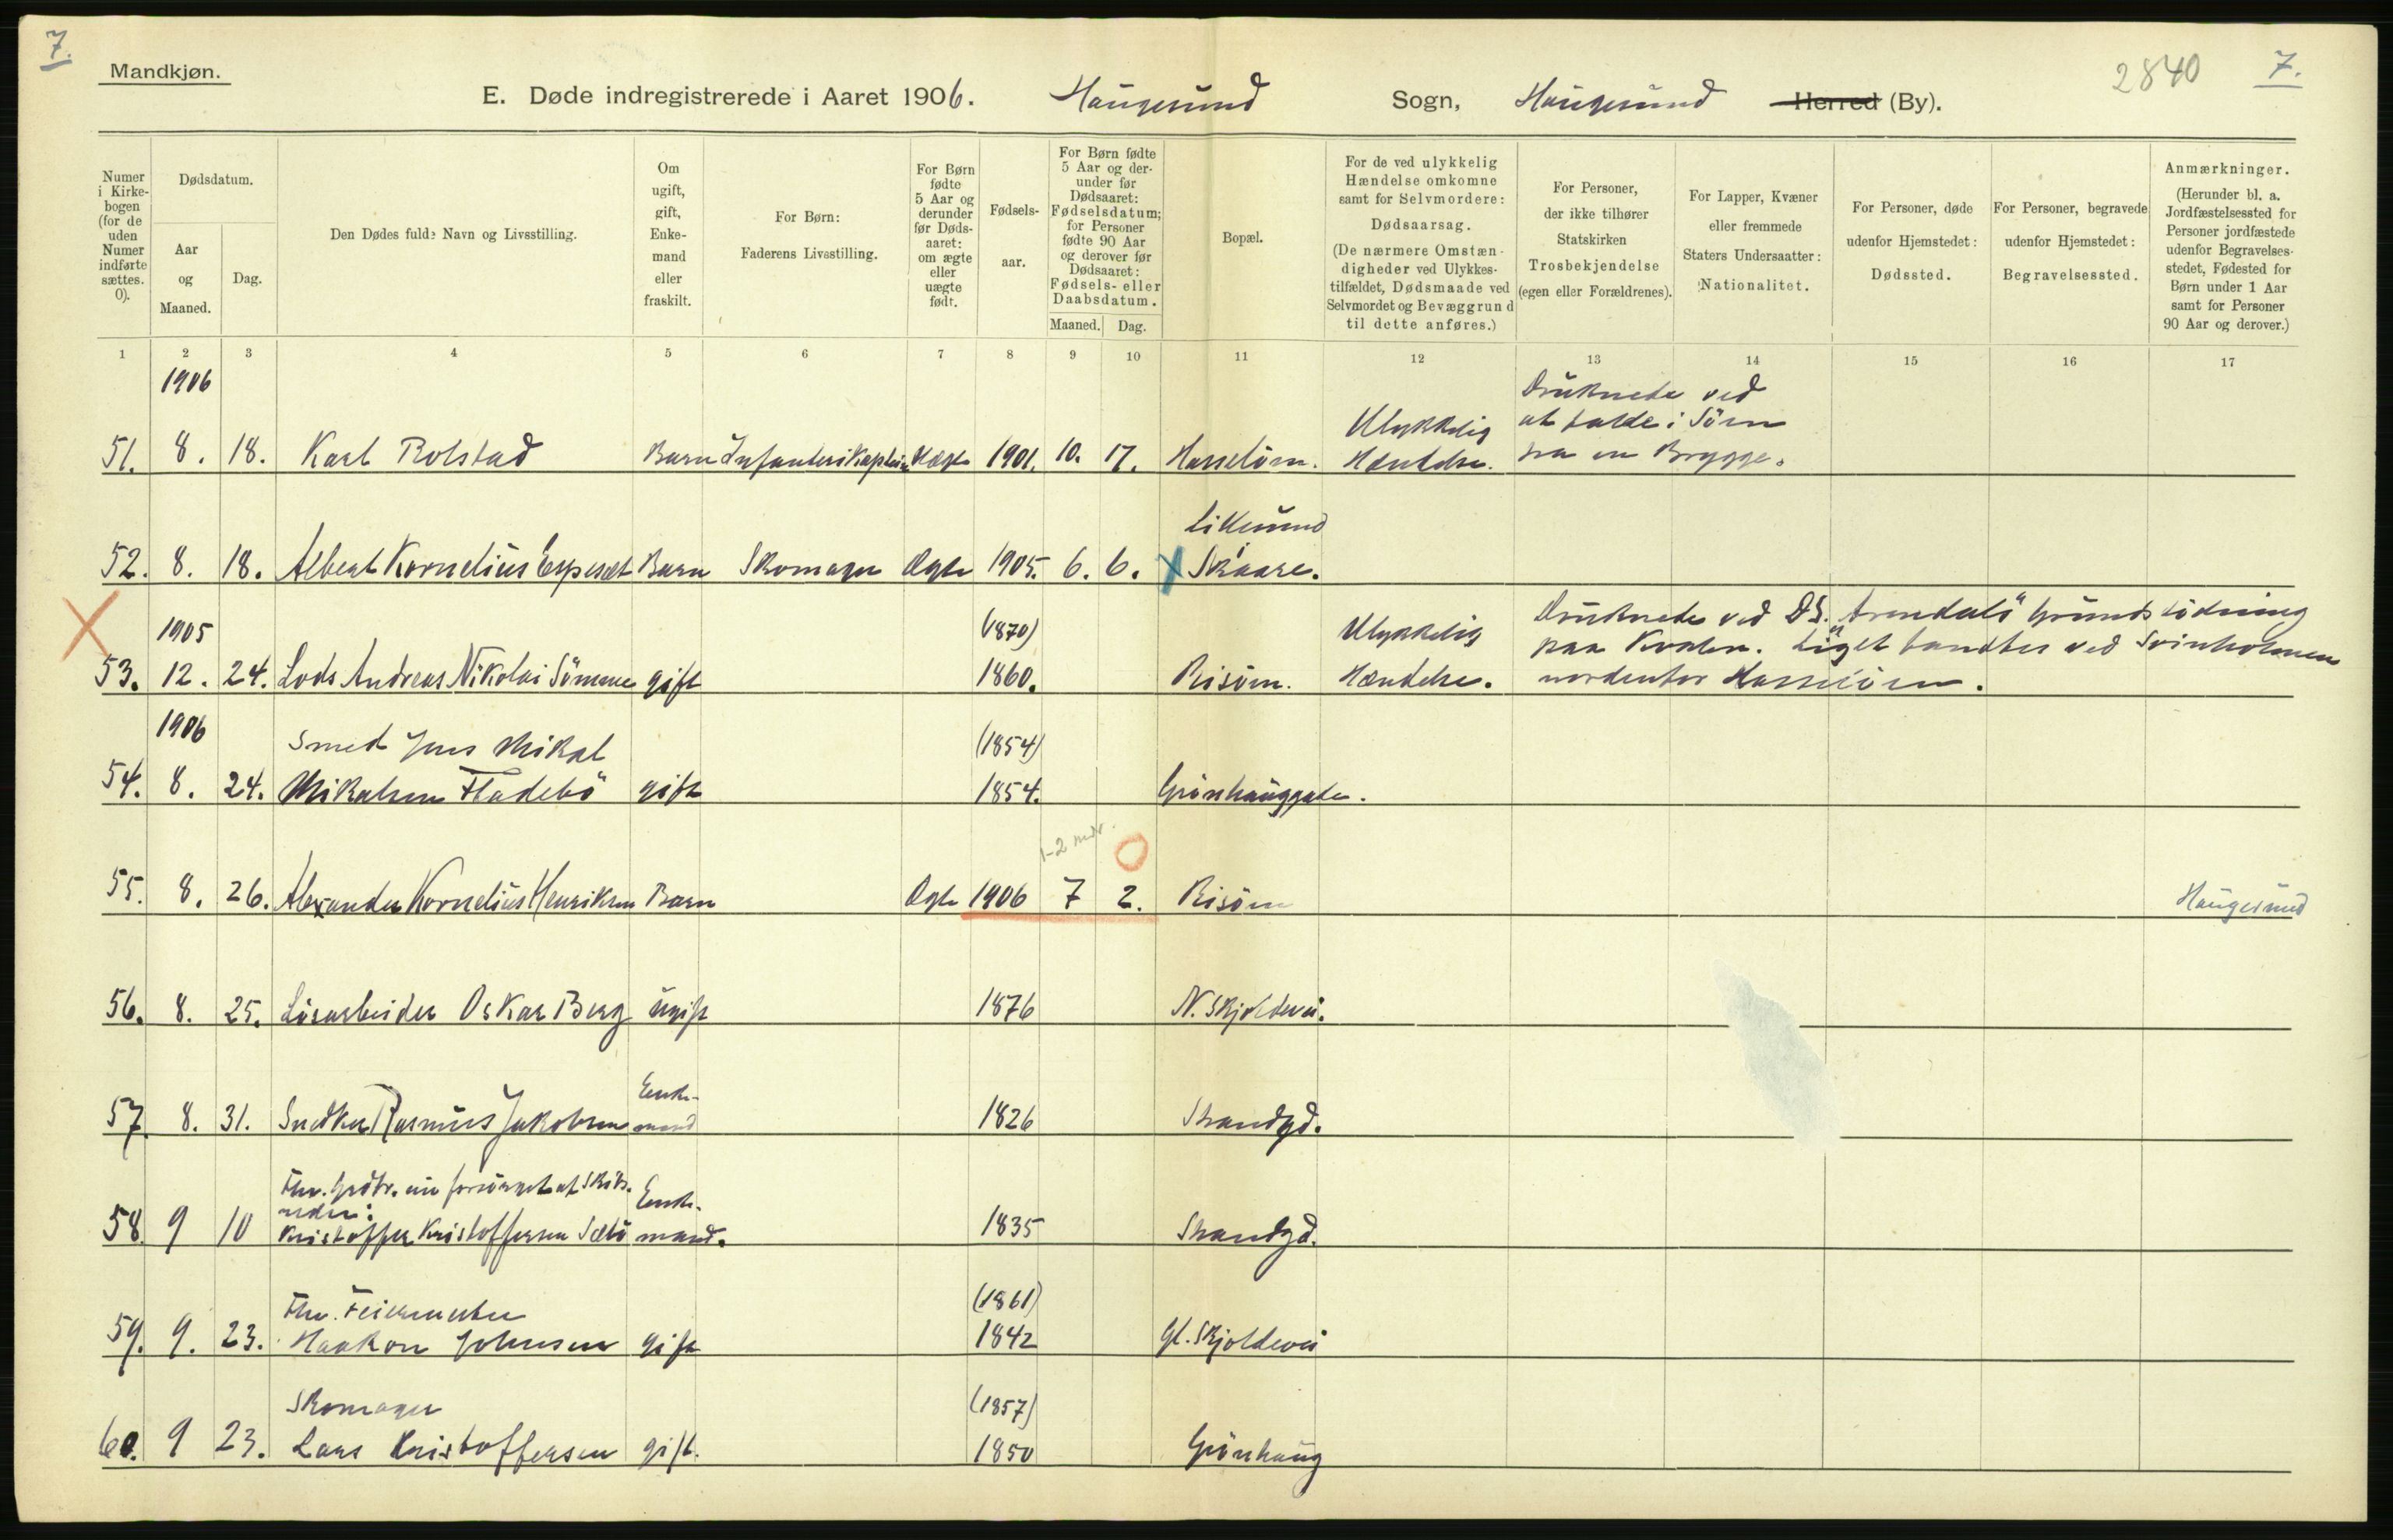 7.
Mandkjøn.
E. Døde indregistrerede i Aaret 1906. Haugesund Sogn, Haugesund Herred (By).
2840 7.
Numer i Kirkebogen (for de uden Numer indførte sættes. 0).
Dødsdatum.
Aar og Maaned.
Dag.
Den Dødes fulde Navn og Livsstilling.
Om ugift, gift, Enkemand eller fraskilt.
For Børn: Faderens Livsstilling.
For Børn fødte 5 Aar og derunder før Dødsaaret: om ægte eller uægte født.
Fødselsaar.
For Børn fødte 5 Aar og derunder før Dødsaaret: Fødselsdatum; for Personer fødte 90 Aar og derover før Dødsaaret: Fødsels- eller Daabsdatum.
Maaned. Dag.
Bopæl.
For de ved ulykkelig Hændelse omkomne samt for Selvmordere: Dødsaarsag. (De nærmere Omstændigheder ved Ulykkestilfældet, Dødsmaade ved Selvmordet og Bevæggrund til dette anføres.)
For Personer, der ikke tilhører Statskirken Trosbekjendelse (egen eller Forældrenes).
For Lapper, Kvæner eller fremmede Staters Undersaatter: Nationalitet.
For Personer, døde udenfor Hjemstedet: Dødssted.
For Personer, begravede udenfor Hjemstedet: Begravelsessted.
Anmærkninger. (Herunder bl. a. Jordfæstelsessted for Personer jordfæstede udenfor Begravelsesstedet, Fødested for Børn under 1 Aar samt for Personer 90 Aar og derover.)
1 2 3 4 5 6 7 8 9 10 11 12 13 14 15 16 17
1906
Druknede ved
Ulykkelig at falde i Søen
51. 8. 18. Karl Rolstad Barn Infanterikaptein Uægte 1901. 10. 17. Hasseløen. Hændelse. fra en Brygge.
Lillesund
52. 8. 18. Albert Kornelius Espesæt Barn Skomager Ægte 1905. 6. 6. X Skaare.
X 1905 (1870) Ulykkelig Druknede ved DS. "Arendals" Grundstødning
paa Kvalen. Liget fandtes ved Svinholmen
53. 12. 24. Lods Andreas Nikolai Sømme gift 1860. Risøen. Hændelse. nordenfor Hasseløen.
1906 Smed Jens Mikal (1854)
54. 8. 24. Mikalsen Fladebø gift 1854. Grønhauggate.
1-2 mdr. O
55. 8. 26. Alexander Kornelius Henriksen Barn Ægte 1906 7 2. Risøen Haugesund
56. 8. 25. Løsarbeider Oskar Berg ugift 1876 N. Skjoldevei.
Enke-
57. 8. 31. Snedker Rasmus Jakobsen mand 1826 Strandgd.
Fhv. forsørget af Enke-
58 9 10 Kristoffer Kristoffersen Sæbø mand. 1835 Strandgd.
Fhv. Feiermester (1861)
59. 9. 23. Haakon Johnsen gift 1842 Gl. Skjoldevei
Skomager (1857)
60. 9 23. Lars Kristoffersen gift. 1850 Grønhaug